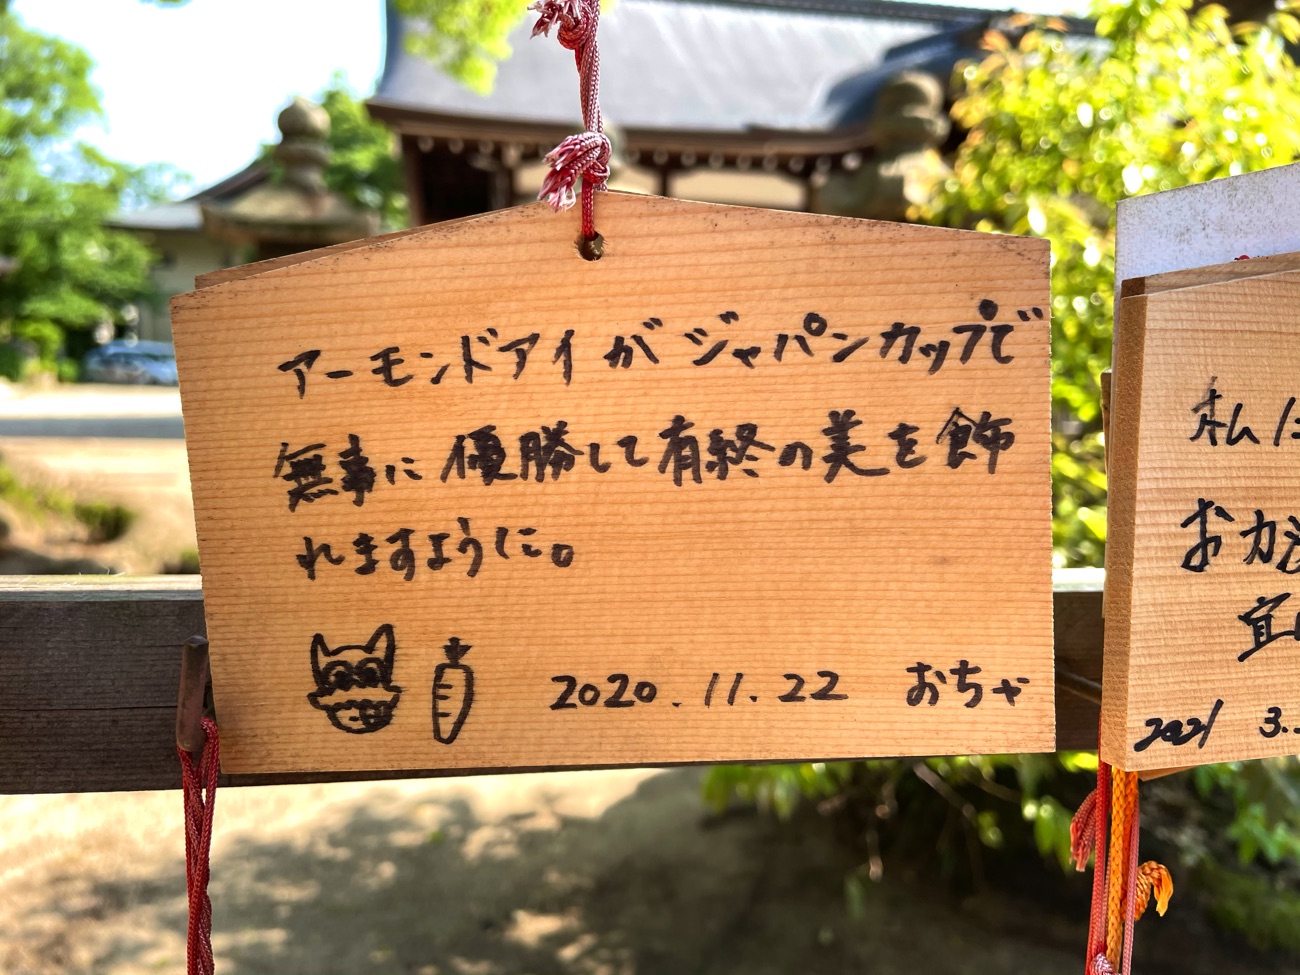 アーモンドアイがジャパンカップで
無事に優勝して有終の美を飾
れますように。
2020.11.22 おちゃ
私に
お力
宜
2021 3.